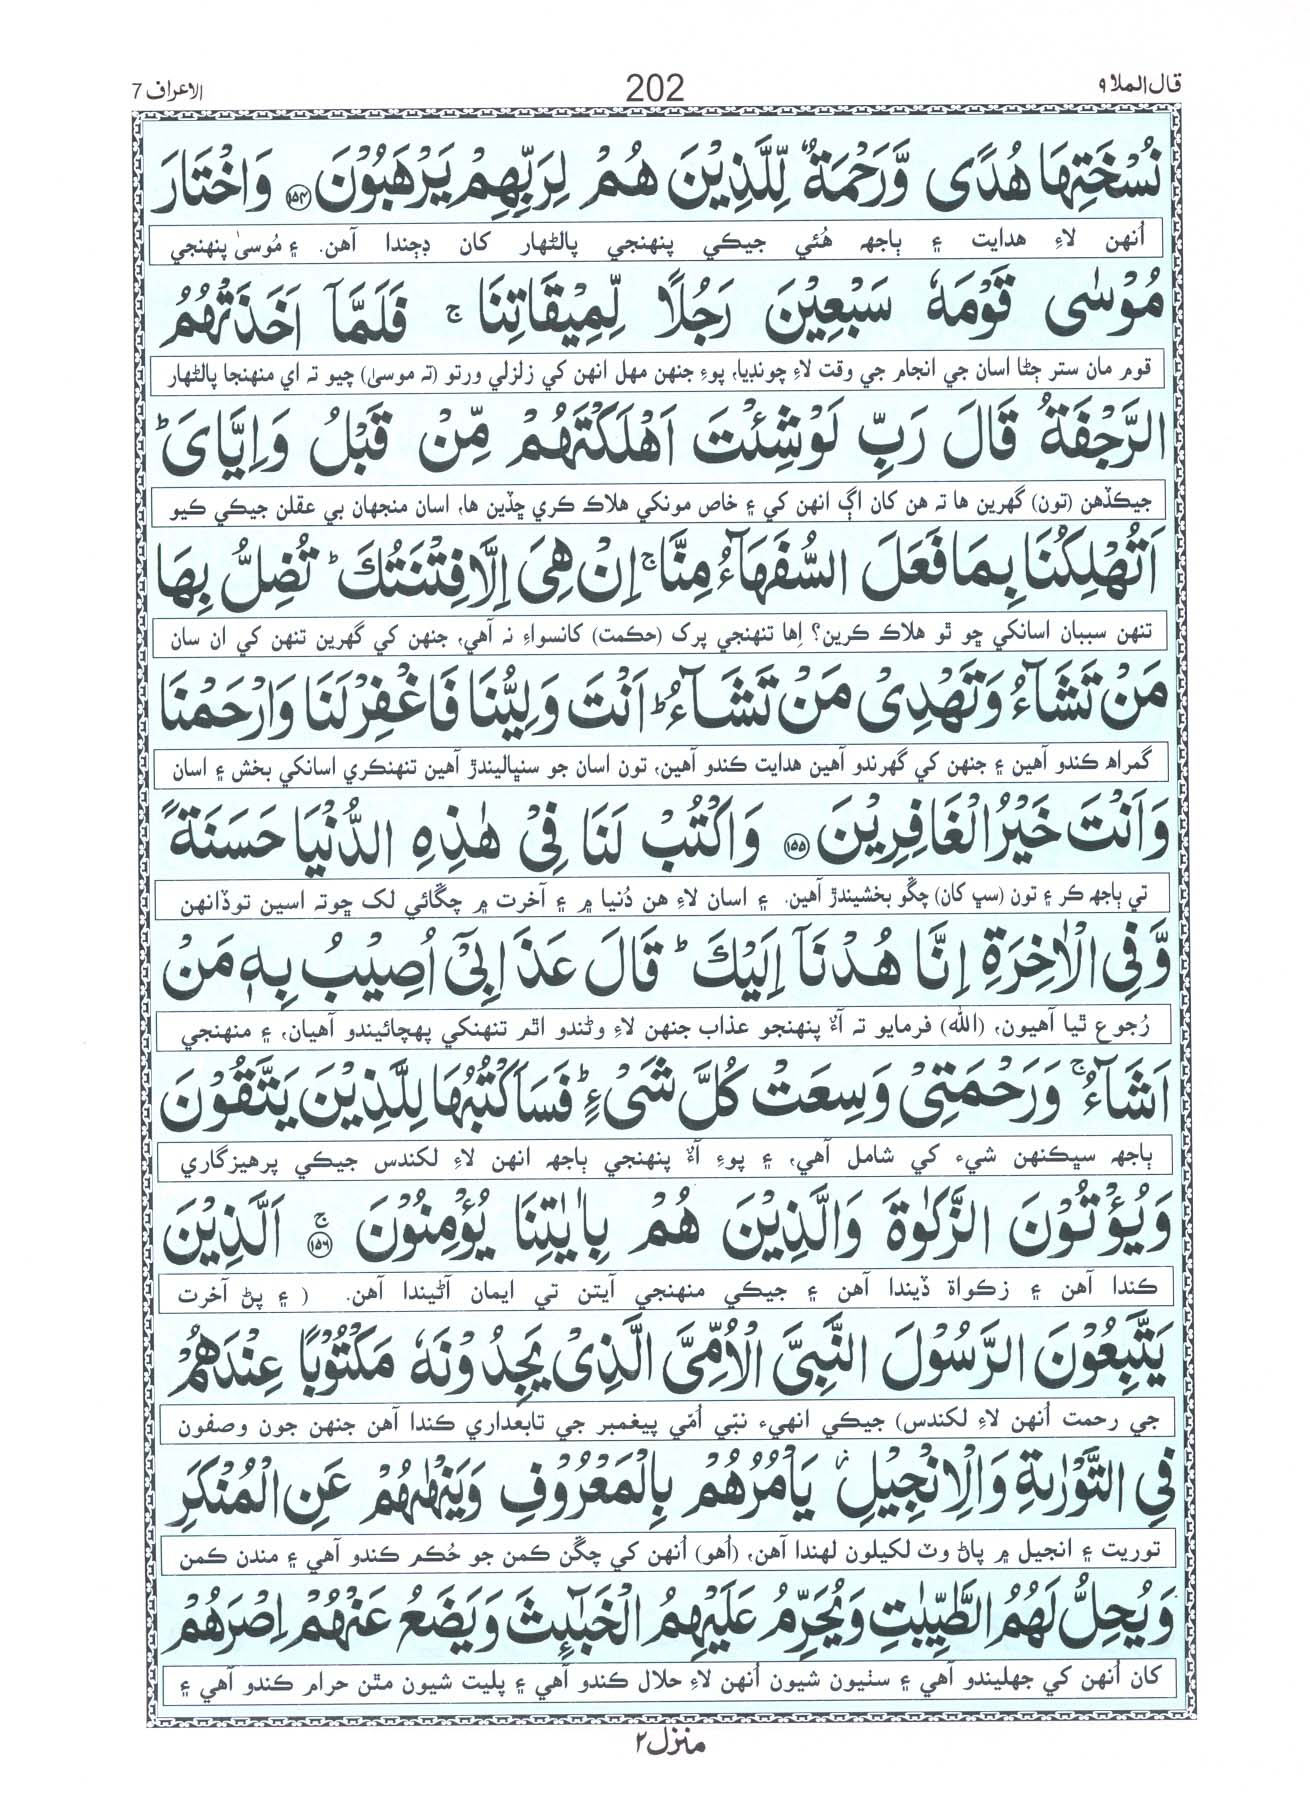 قال الملا ۹ 202 الاعراف 7
نُسْخَتِهَا هُدًى وَّرَحْمَةٌ لِّلَّذِيْنَ هُمْ لِرَبِّهِمْ يَرْهَبُوْنَ ۝۱۵۴ وَاخْتَارَ
اُنهن لاءِ هدايت ۽ ٻاجهه هُئي جيڪي پنهنجي پالڻهار کان ڊڄندا آهن. ۽ مُوسىٰ پنهنجي
مُوْسٰى قَوْمَهٗ سَبْعِيْنَ رَجُلًا لِّمِيْقَاتِنَا ۚ فَلَمَّآ اَخَذَتْهُمُ
قوم مان ستر ڄڻا اسان جي انجام جي وقت لاءِ چونڊيا، پوءِ جنهن مهل انهن کي زلزلي ورتو (ته موسىٰ) چيو ته اي منهنجا پالڻهار
الرَّجْفَةُ قَالَ رَبِّ لَوْ شِئْتَ اَهْلَكْتَهُمْ مِّنْ قَبْلُ وَاِيَّايَ ؕ
جيڪڏهن (تون) گهرين ها ته هن کان اڳ انهن کي ۽ خاص مونکي هلاڪ ڪري ڇڏين ها، اسان منجهان بي عقلن جيڪي ڪيو
اَتُهْلِكُنَا بِمَا فَعَلَ السُّفَهَآءُ مِنَّا ۚ اِنْ هِيَ اِلَّا فِتْنَتُكَ ؕ تُضِلُّ بِهَا
تنهن سببان اسانکي ڇو ٿو هلاڪ ڪرين؟ اِها تنهنجي پرک (حڪمت) کانسواءِ نه آهي، جنهن کي گهرين تنهن کي ان سان
مَنْ تَشَآءُ وَتَهْدِيْ مَنْ تَشَآءُ ؕ اَنْتَ وَلِيُّنَا فَاغْفِرْ لَنَا وَارْحَمْنَا
گمراهه ڪندو آهين ۽ جنهن کي گهرندو آهين هدايت ڪندو آهين، تون اسان جو سنڀاليندڙ آهين تنهنڪري اسانکي بخش ۽ اسان
وَاَنْتَ خَيْرُ الْغَافِرِيْنَ ۝۱۵۵ وَاكْتُبْ لَنَا فِيْ هٰذِهِ الدُّنْيَا حَسَنَةً
تي ٻاجهه ڪر ۽ تون (سڀ کان) چڱو بخشيندڙ آهين. ۽ اسان لاءِ هن دُنيا ۾ ۽ آخرت ۾ چڱائي لک ڇوته اسين توڏانهن
وَّفِي الْاٰخِرَةِ اِنَّا هُدْنَآ اِلَيْكَ ؕ قَالَ عَذَابِيْٓ اُصِيْبُ بِهٖ مَنْ
رُجوع ٿيا آهيون، (الله) فرمايو ته آءٌ پنهنجو عذاب جنهن لاءِ وڻندو اٿم تنهنکي پهچائيندو آهيان، ۽ منهنجي
اَشَآءُ ۚ وَرَحْمَتِيْ وَسِعَتْ كُلَّ شَيْءٍ ؕ فَسَاَكْتُبُهَا لِلَّذِيْنَ يَتَّقُوْنَ
ٻاجهه سڀڪنهن شيء کي شامل آهي، ۽ پوءِ آءٌ پنهنجي ٻاجهه انهن لاءِ لکندس جيڪي پرهيزگاري
وَيُؤْتُوْنَ الزَّكٰوةَ وَالَّذِيْنَ هُمْ بِاٰيٰتِنَا يُؤْمِنُوْنَ ۚ۝۱۵۶ اَلَّذِيْنَ
ڪندا آهن ۽ زڪواة ڏيندا آهن ۽ جيڪي منهنجي آيتن تي ايمان آڻيندا آهن. ( ۽ پڻ آخرت
يَتَّبِعُوْنَ الرَّسُوْلَ النَّبِيَّ الْاُمِّيَّ الَّذِيْ يَجِدُوْنَهٗ مَكْتُوْبًا عِنْدَهُمْ
جي رحمت اُنهن لاءِ لکندس) جيڪي انهيء نبّي اُمّي پيغمبر جي تابعداري ڪندا آهن جنهن جون وصفون
فِي التَّوْرٰىةِ وَالْاِنْجِيْلِ ۡ يَاْمُرُهُمْ بِالْمَعْرُوْفِ وَيَنْهٰىهُمْ عَنِ الْمُنْكَرِ
توريت ۽ انجيل ۾ پاڻ وٽ لکيلون لهندا آهن، (اُهو) اُنهن کي چڱن ڪمن جو حُڪم ڪندو آهي ۽ مندن ڪمن
وَيُحِلُّ لَهُمُ الطَّيِّبٰتِ وَيُحَرِّمُ عَلَيْهِمُ الْخَبٰٓئِثَ وَيَضَعُ عَنْهُمْ اِصْرَهُمْ
کان اُنهن کي جهليندو آهي ۽ سٺيون شيون اُنهن لاءِ حلال ڪندو آهي ۽ پليت شيون مٿن حرام ڪندو آهي ۽
منزل ۲